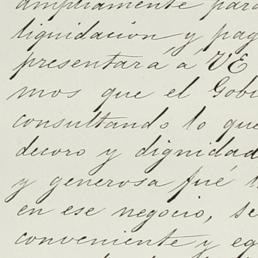 ampliamente para
liquidacion y pag
presentará a VE
mos que el Gobi
consultando lo que
decoro y dignidad
y generosa fué
en ese negocio, se
conveniente y eq